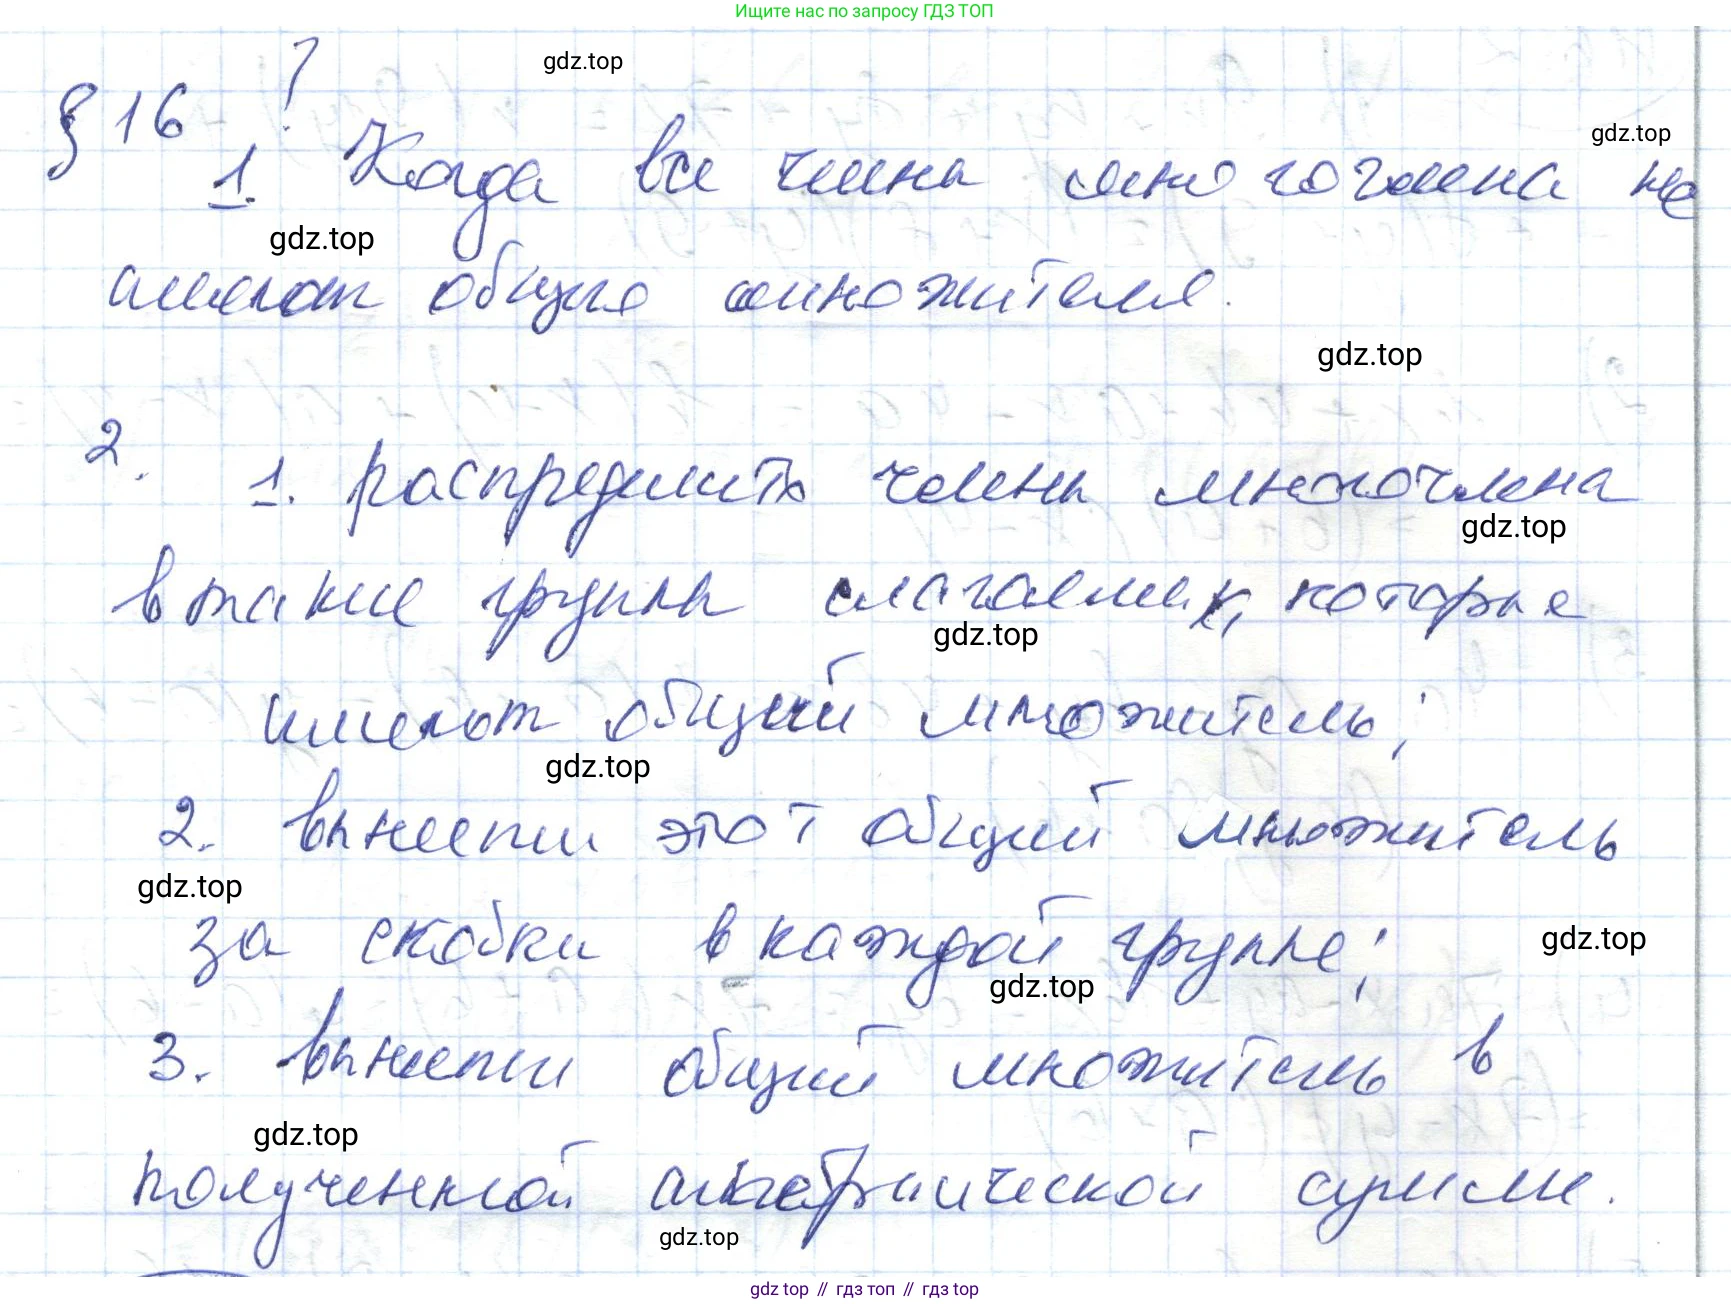 Ищите нас по запросу ГДЗ ТОП
gdz.top
§ 16 ?
gdz.top
1. Когда все члены многочлена не
gdz.top
имеют общие множителя.
gdz.top
2. 1. распределить члены многочлена
gdz.top
в такие группы слагаемых, которые
gdz.top
имеют общий множитель;
gdz.top
2. вынести этот общий множитель
gdz.top
за скобки в каждой группе;
gdz.top
gdz.top
3. вынести общий множитель в
gdz.top
полученной алгебраической сумме.
gdz.top
gdz top // гдз топ // gdz top